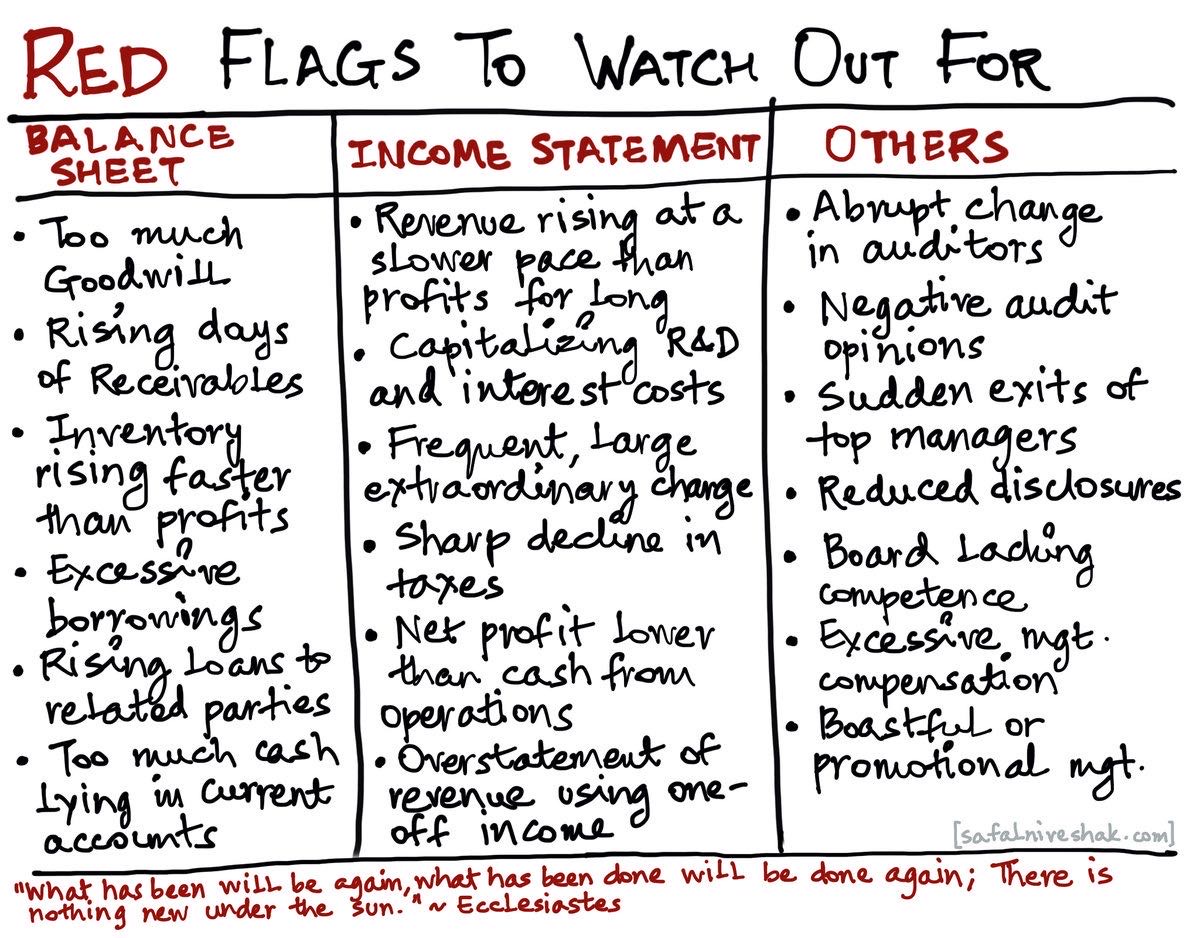 RED FLAGS TO WATCH OUT FOR
BALANCE
SHEET
• Too much
Goodwill
• Rising days
of Receivables
• Inventory
rising faster
than profits
• Excessive
borrowings
• Rising Loans to
related parties
• Too much cash
Lying in current
accounts
INCOME STATEMENT
• Revenue rising at a
slower pace than
profits for long
• Capitalizing R&D
and interest costs
• Frequent, Large
extraordinary change
• Sharp decline in
taxes
• Net profit lower
than cash from
operations
• Overstatement of
revenue using one-
off income
OTHERS
• Abrupt change
in auditors
• Negative audit
opinions
• Sudden exits of
top managers
• Reduced disclosures
• Board Lacking
competence
• Excessive mgt.
compensation
• Boastful or
promotional mgt.
[safalniveshak.com]
"What has been will be again, what has been done will be done again; There is
nothing new under the sun." ~ Ecclesiastes